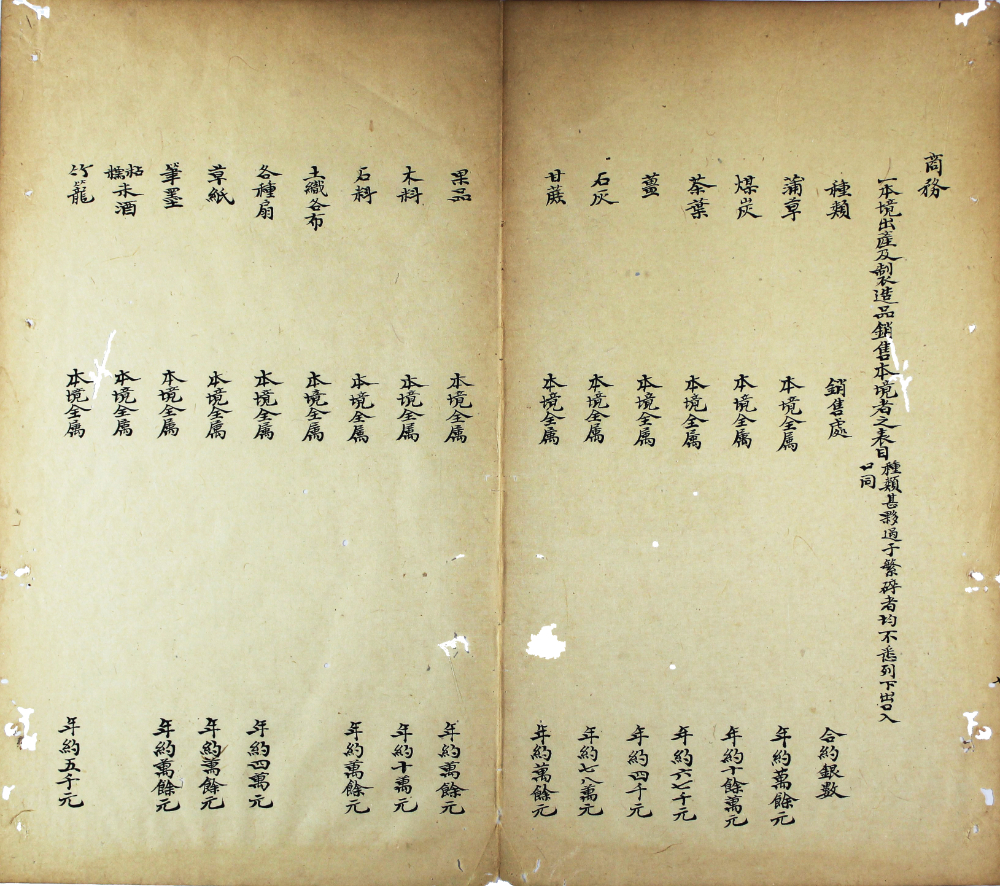 商務
一本境出產及製造品銷售本境者之表目種類甚夥過于繁碎者均不悉列下出口入口同
種類 銷售處 合約銀數
蒲草 本境全属 年約萬餘元
煤炭 本境全属 年約十餘萬元
茶葉 本境全属 年約六七千元
薑 本境全属 年約四千元
石灰 本境全属 年約七八萬元
甘蔗 本境全属 年約萬餘元
果品 本境全属 年約萬餘元
木料 本境全属 年約十萬元
石料 本境全属 年約萬餘元
土織各布 本境全属
各種扇 本境全属 年約四萬元
草紙 本境全属 年約萬餘元
筆墨 本境全属 年約萬餘元
粘糯米酒 本境全属
竹籠 本境全属 年約五千元